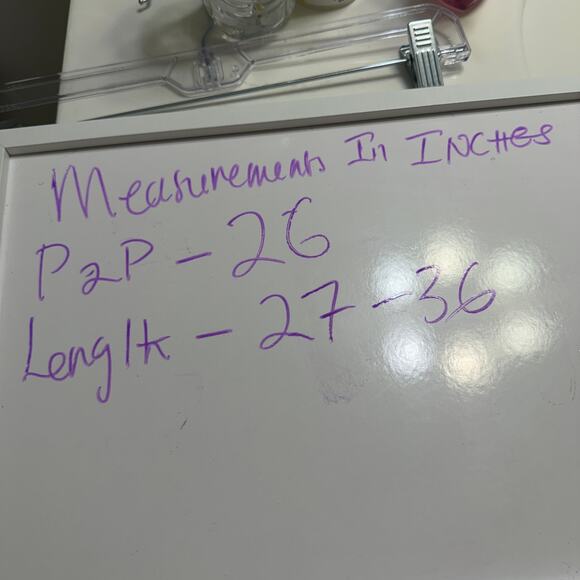 Measurements In INCHES
P2P - 26
Length - 27-36